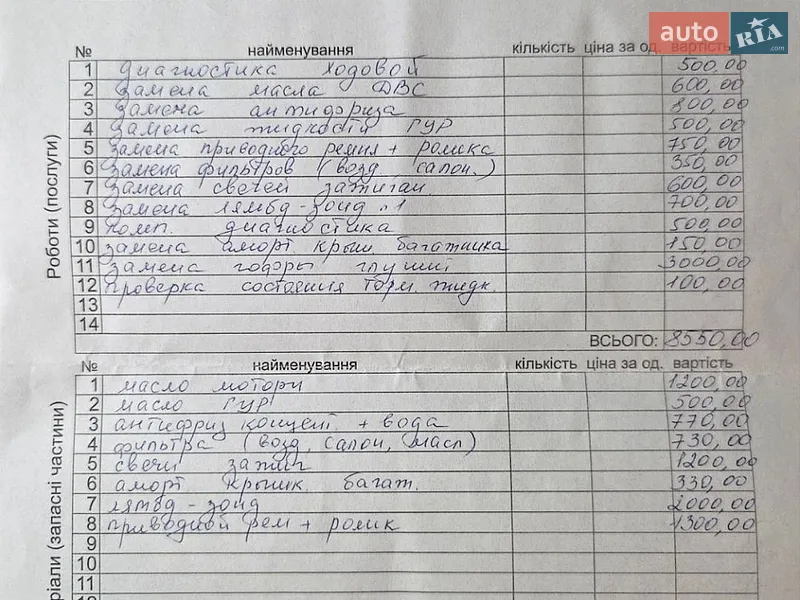 auto RIA .com
№ найменування кількість ціна за од. вартість
Роботи (послуги)
1 диагностика ходовой 500,00
2 замена масла ДВС 600,00
3 замена антифриза 800,00
4 замена жидкости ГУР 500,00
5 замена приводного ремня + ролика 750,00
6 замена фильтров (возд, салон.) 350,00
7 замена свечей зажиган 600,00
8 замена лямбд-зонд 1 700,00
9 комп. диагностика 500,00
10 замена аморт крыш багатника 150,00
11 замена гофры глушит 3000,00
12 проверка состояния торм. жидк. 100,00
13
14
ВСЬОГО: 8550,00
№ найменування кількість ціна за од. вартість
ріали (запасні частини)
1 масло моторн 1200,00
2 масло ГУР 500,00
3 антифриз концент. + вода 770,00
4 фильтра (возд, салон, масл) 730,00
5 свечи зажиг 1200,00
6 аморт крышк. багат. 330,00
7 лямбд-зонд 2000,00
8 приводной рем + ролик 1300,00
9
10
11